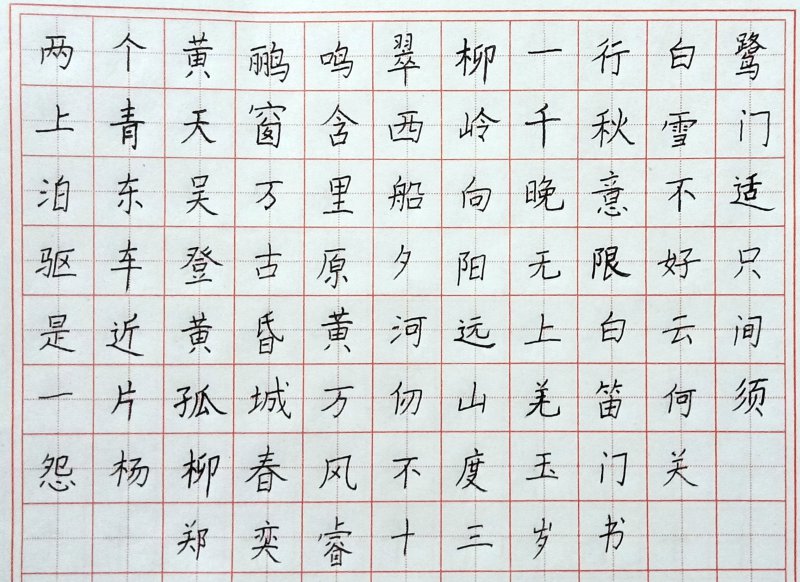 两个黄鹂鸣翠柳一行白鹭
上青天窗含西岭千秋雪门
泊东吴万里船向晚意不适
驱车登古原夕阳无限好只
是近黄昏黄河远上白云间
一片孤城万仞山羌笛何须
怨杨柳春风不度玉门关
郑奕睿十三岁书